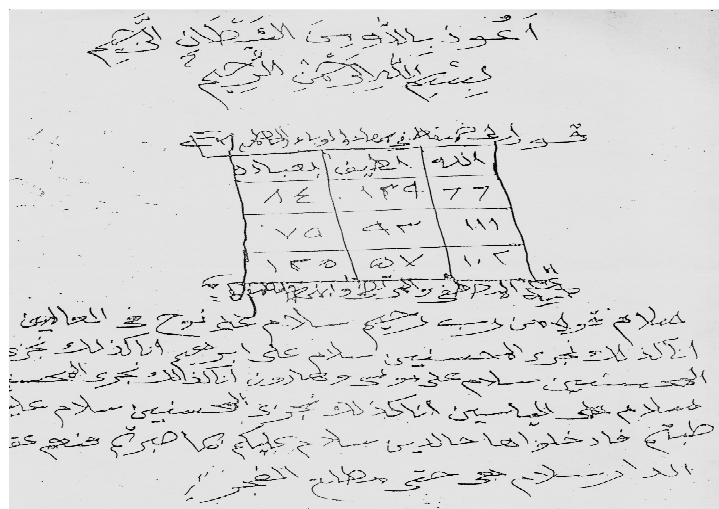 اعوذ بالله من الشيطان الرجيم
بسم الله الرحمن الرحيم
الله لطيف بعباده
٧٧ ١٣٩ ٨٤
١١١ ٩٣ ٧٥
١٠٢ ٥٧ ١٣٥
سلام قولا من رب رحيم سلام على نوح في العالمين
انا كذلك نجزي المحسنين سلام على ابرهيم انا كذلك نجزي
المحسنين سلام على موسى وهارون انا كذلك نجزي المحسنين
سلام على الياسين انا كذلك نجزي المحسنين سلام عليكم
طبتم فادخلوها خالدين سلام عليكم بما صبرتم فنعم عقبى
الدار سلام هي حتى مطلع الفجر